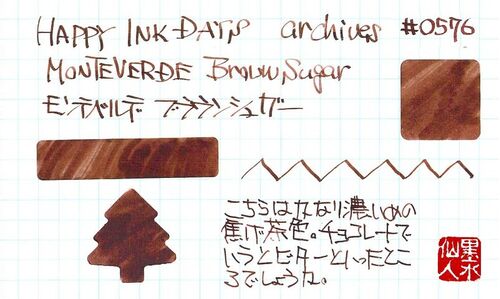 HAPPY INK DAYS archives #0576
MONTEVERDE Brown Sugar
モンテベルデ ブラウンシュガー
こちらはかなり濃いめの
焦げ茶色。チョコレートで
いうとビターといったとこ
ろでしょうか。
墨水
仙人